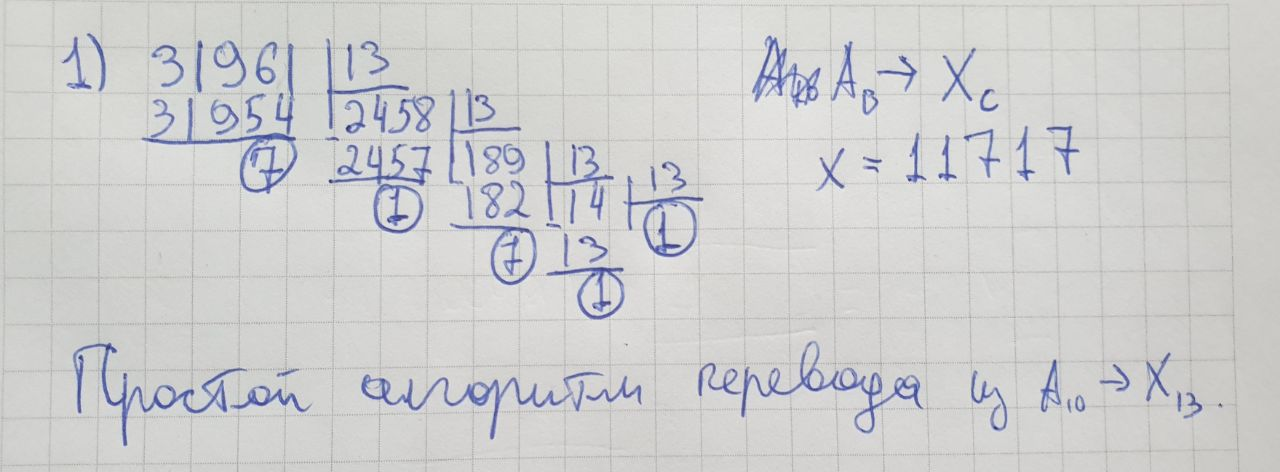 1) 31961 13
31954 2458 13
7 2457 189 13 13
1 182 14 1
7 13
1
A_B → X_C
x = 11717
Простой алгоритм перевода из A₁₀ → X₁₃.